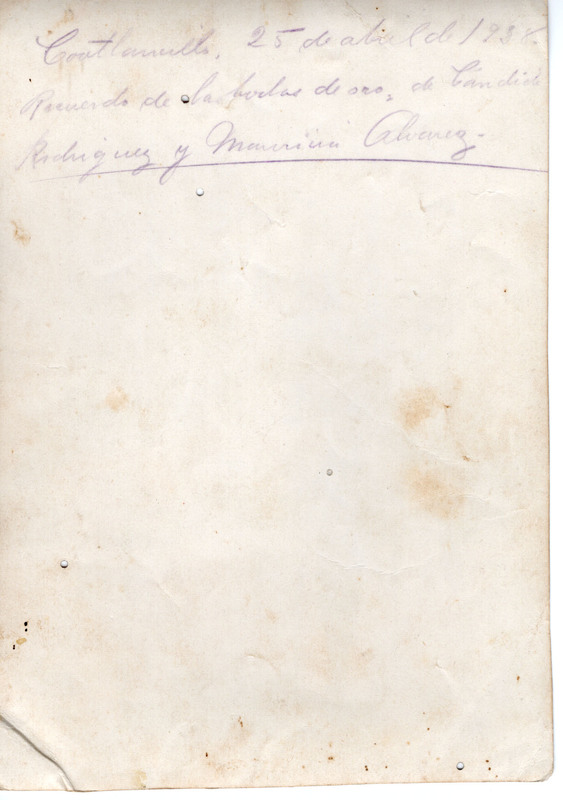 Coatlamulto, 25 de abril de 1938.
Recuerdo de las bodas de oro, de Cándido
Rodriguez y Alvarez.-